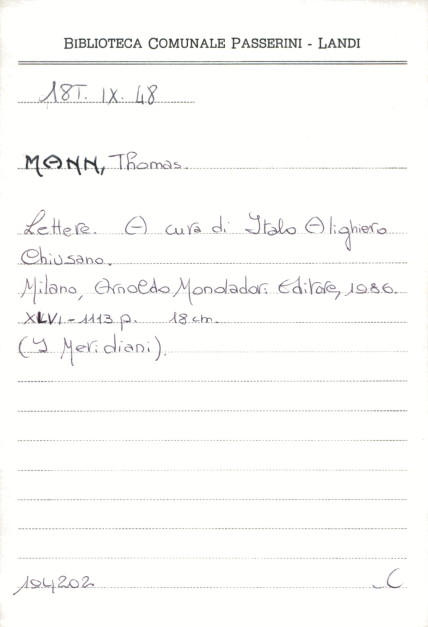 BIBLIOTECA COMUNALE PASSERINI - LANDI
18T. IX. 48
MANN, Thomas.
Lettere. A cura di Italo Alighiero
Chiusano.
Milano, Arnoldo Mondadori Editore, 1986.
XLVI - 1113 p. 18 cm.
(I Meridiani).
194202
C